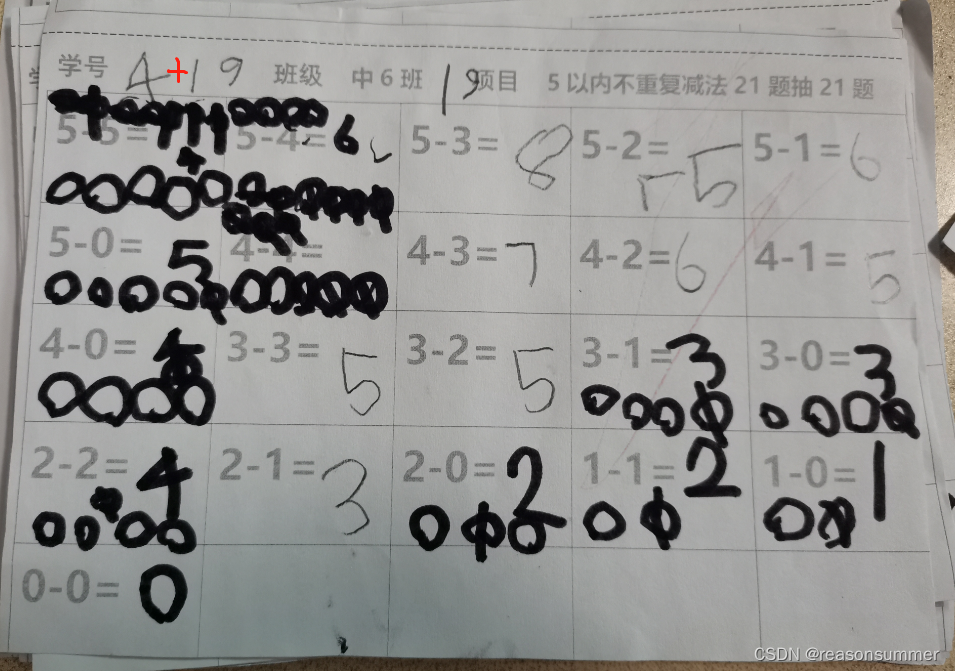 学号 4+19 班级 中6班 19 项目 5以内不重复减法21题抽21题
5-5= 5-4=6 5-3=8 5-2=5 5-1=6
5-0=5 4-4= 4-3=7 4-2=6 4-1=5
4-0=4 3-3=5 3-2=5 3-1=3 3-0=3
2-2=4 2-1=3 2-0=2 1-1=2 1-0=1
0-0=0
CSDN @reasonsummer